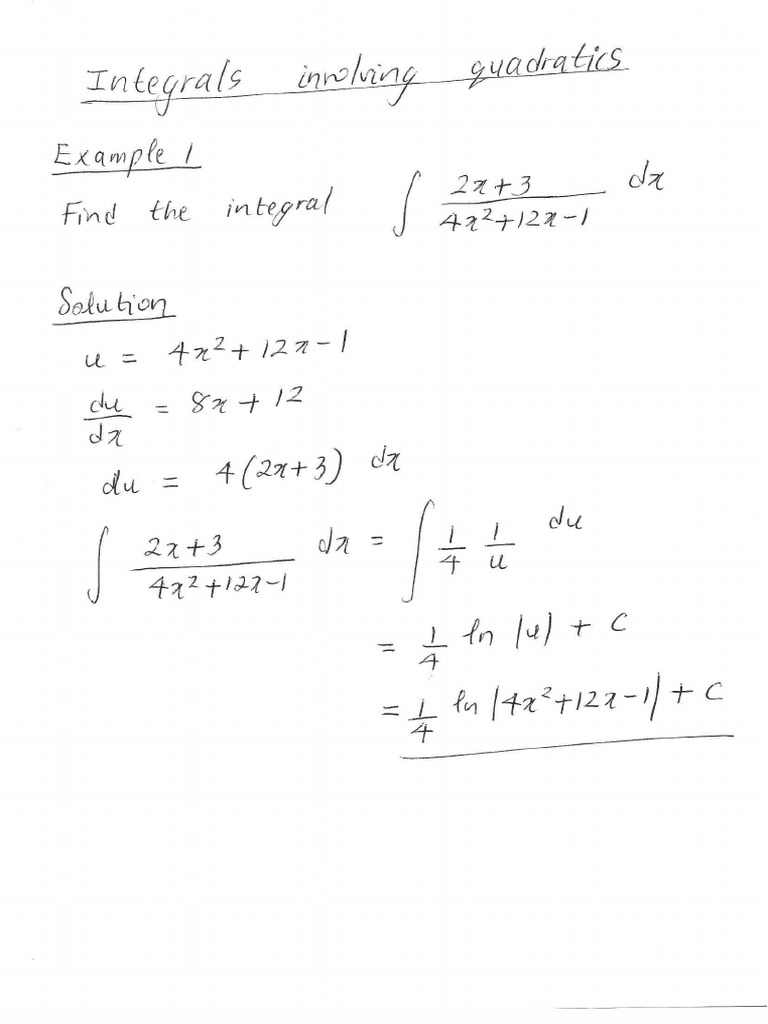 Integrals involving quadratics
Example 1
Find the integral ∫ (2x+3)/(4x²+12x-1) dx
Solution
u = 4x²+12x-1
du/dx = 8x+12
du = 4(2x+3) dx
∫ (2x+3)/(4x²+12x-1) dx = ∫ 1/4 1/u du
= 1/4 ln |u| + c
= 1/4 ln |4x²+12x-1| + c